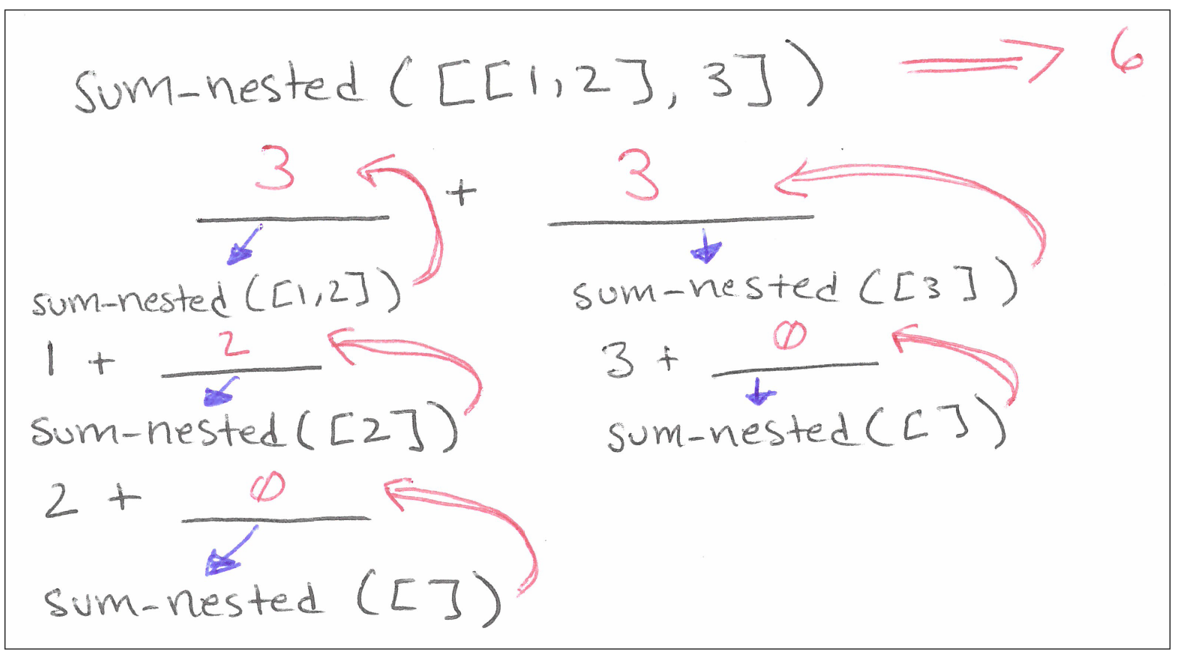 sum-nested ([[1,2], 3]) ⟹ 6
3 + 3
sum-nested ([1,2]) sum-nested ([3])
1 + 2 3 + 0
sum-nested ([2]) sum-nested ([])
2 + 0
sum-nested ([])